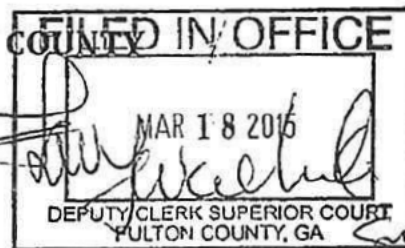 COUNTY
FILED IN OFFICE
MAR 18 2015
DEPUTY CLERK SUPERIOR COURT
FULTON COUNTY, GA